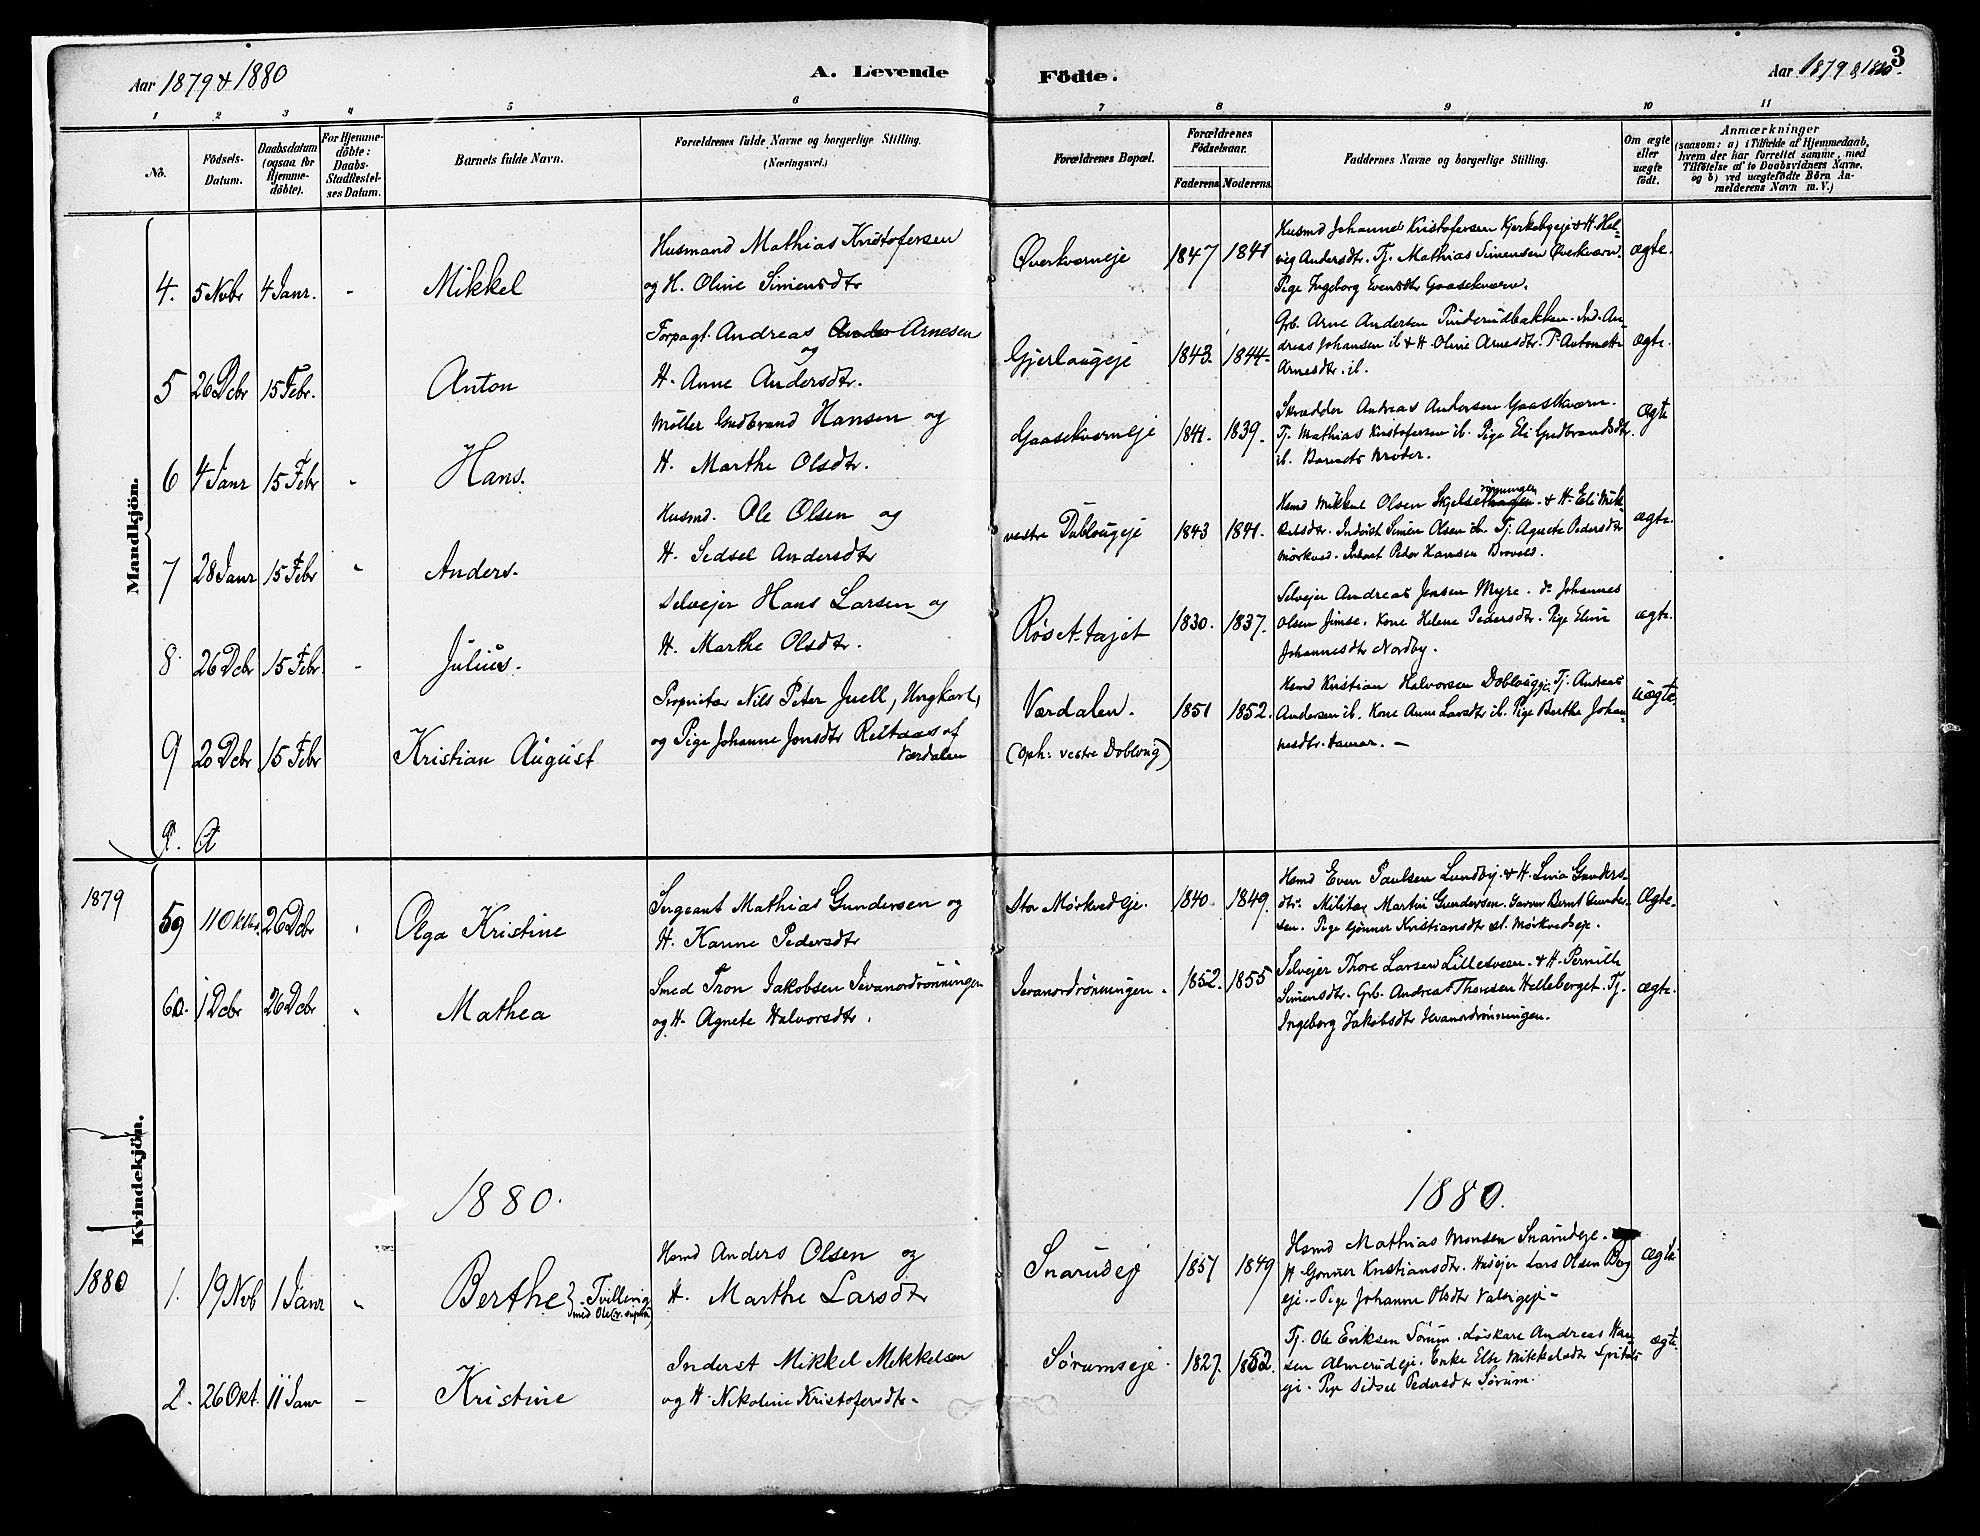 Aar 1879 & 1880
A. Levende
Födte.
Aar 1879 & 1880.
3
1 2 3 4 5 6 7 8 9 10 11
No.
Födsels-Datum.
Daabsdatum (ogsaa for Hjemme-döbte).
For Hjemme-döbte: Daabs-Stadfæstel-ses Datum.
Barnets fulde Navn.
Forældrenes fulde Navne og borgerlige Stilling. (Næringsvei.)
Forældrenes Bopæl.
Forældrenes Födselsaar.
Faderens. Moderens.
Faddernes Navne og borgerlige Stilling.
Om ægte eller uægte födt.
Anmærkninger (saasom: a) i Tilfælde af Hjemmedaab, hvem der har forrettet samme, med Tilföielse af to Daabsvidners Navne. og b) ved uægtefödte Börn An-melderens Navn m. V.)
Mandkjön.
Husmand Mathias Kristofersen
4. 5 Novbr 4 Janr. - Mikkel
og H. Oline Simensdtr
Øverkværneje 1847 1841
Husmd Johannes Kristofersen Kjerkebyeje & H. Hel-
vig Andersdtr. Tj. Mathias Simensen Øverkværn.
Pige Ingeborg Evensdtr Gaasekværn.
ægte.
Forpagt. Andreas Arnesen
og
5 26 Dcbr 15 Febr. Anton
H. Anne Andersdtr.
Gjerlaugeje 1843. 1844.
Grb. Arne Andersen Pinderudbakken. Ind. An-
dreas Johansen ib & H Oline Arnesdtr. P. Antonette
Arnesdtr. ib.
ægte.
Møller Gudbrand Hansen og
6 4 Janr 15 Febr - Hans.
H. Marthe Olsdtr.
Gaasekværneje 1841. 1839.
Skrædder Andreas Andersen Gaasekværn.
Tj. Mathias Kristofersen ib. Pige Eli Gudbrandsdtr.
ib. Barnets Moder.
Ægte
Husmd. Ole Olsen og
7 28 Janr 15 Febr - Anders.
H. Sedsel Andersdtr
vestre Dublougeje 1843 1841.
rønningen
Hsmd Mikkel Olsen & H. Eli Mik-
kelsdtr. Inderst Simen Olsen ib. Tj. Agnete Pedersdtr
Mørkved. Inderst Peder Hansen
ægte.
Selvejer Hans Larsen og
8. 26 Dcbr 15 Febr. - Julius.
H. Marthe Olsdtr.
1830. 1837.
Selvejer Andreas Jensen Myre. do Johannes
Olsen Jimse. Kone Helene Pedersdtr. Pige Eline
Johannesdtr Nordby.
ægte.
Proprietær Nils Peter Juell, Ungkarl,
9 20 Dcbr 15 Febr Kristian August
og Pige Johanne Jonsdtr Restaas af
Værdalen
Værdalen. 1851 1852.
(Oph: vestre Dobloug)
Hsmd Kristian Halvorsen Doblougeje. Tj. Andreas
Andersen ib. Kone Anne Larsdtr ib. Pige Berthe Johan-
nesdtr. Hamar. -
uægte
9. A
1879
Kvindekjön.
Sergeant Mathias Gundersen og
59 11 Oktbr. 26 Dcbr - Olga Kristine
H. Karine Pedersdtr
Stor Mørkvedeje. 1840 1849.
Hsmd Even Paulsen Lundby. & H. Lina Gunders-
dtr. Militær Martin Gundersen. Garver Bernt Gunder-
sen. Pige Gønner Kristiansdtr st. Mørkvedseje.
Ægte.
Smed Tron Jakobsen Jevanordrønningen
60. 1 Dcbr 26 Dcbr - Mathea
og H. Agnete Halvorsdtr.
Jevanordrønningen. 1852. 1855
Selvejer Thore Larsen Lillesveen. & H. Pernille
Simensdtr. Grb. Andreas Thoresen Helleberget. Tj.
Ingeborg Jakobsdtr Jevanordrønningen.
ægte.
1880.
1880.
1880
Hsmd Anders Olsen og
1. 19 Nvb 1 Janr - Berthe } Tvilling
med Ole
H. Marthe Larsdtr
Snarudeje 1857 1849
Hsmd Mathias Monsen Snarudeje.
H Gønner Kristiansdtr. Husejer Lars Olsen Berg
eje. - Pige Johanne Olsdtr -
Ægte
Inderst Mikkel Mikkelsen
2. 26 Okt. 11 Janr - Kristine
og H. Nikoline Kristofersdtr.
Sørumseje. 1827. 1852.
Tj. Ole Eriksen Sørum. Løskarl Andreas Han-
sen Almerudeje. Enke Else Mikkelsdtr Spitals-
eje. Pige Sidsel Pedersdtr Sørum.
ægte.